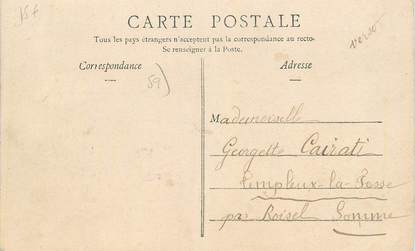 15 f
verso
CARTE POSTALE
Tous les pays étrangers n'acceptent pas la correspondance au recto-
Se renseigner à la Poste.
Correspondance
Adresse
59)
Mademoiselle
Georgette Cairati
Templeux-la-Fosse
par Roisel Somme